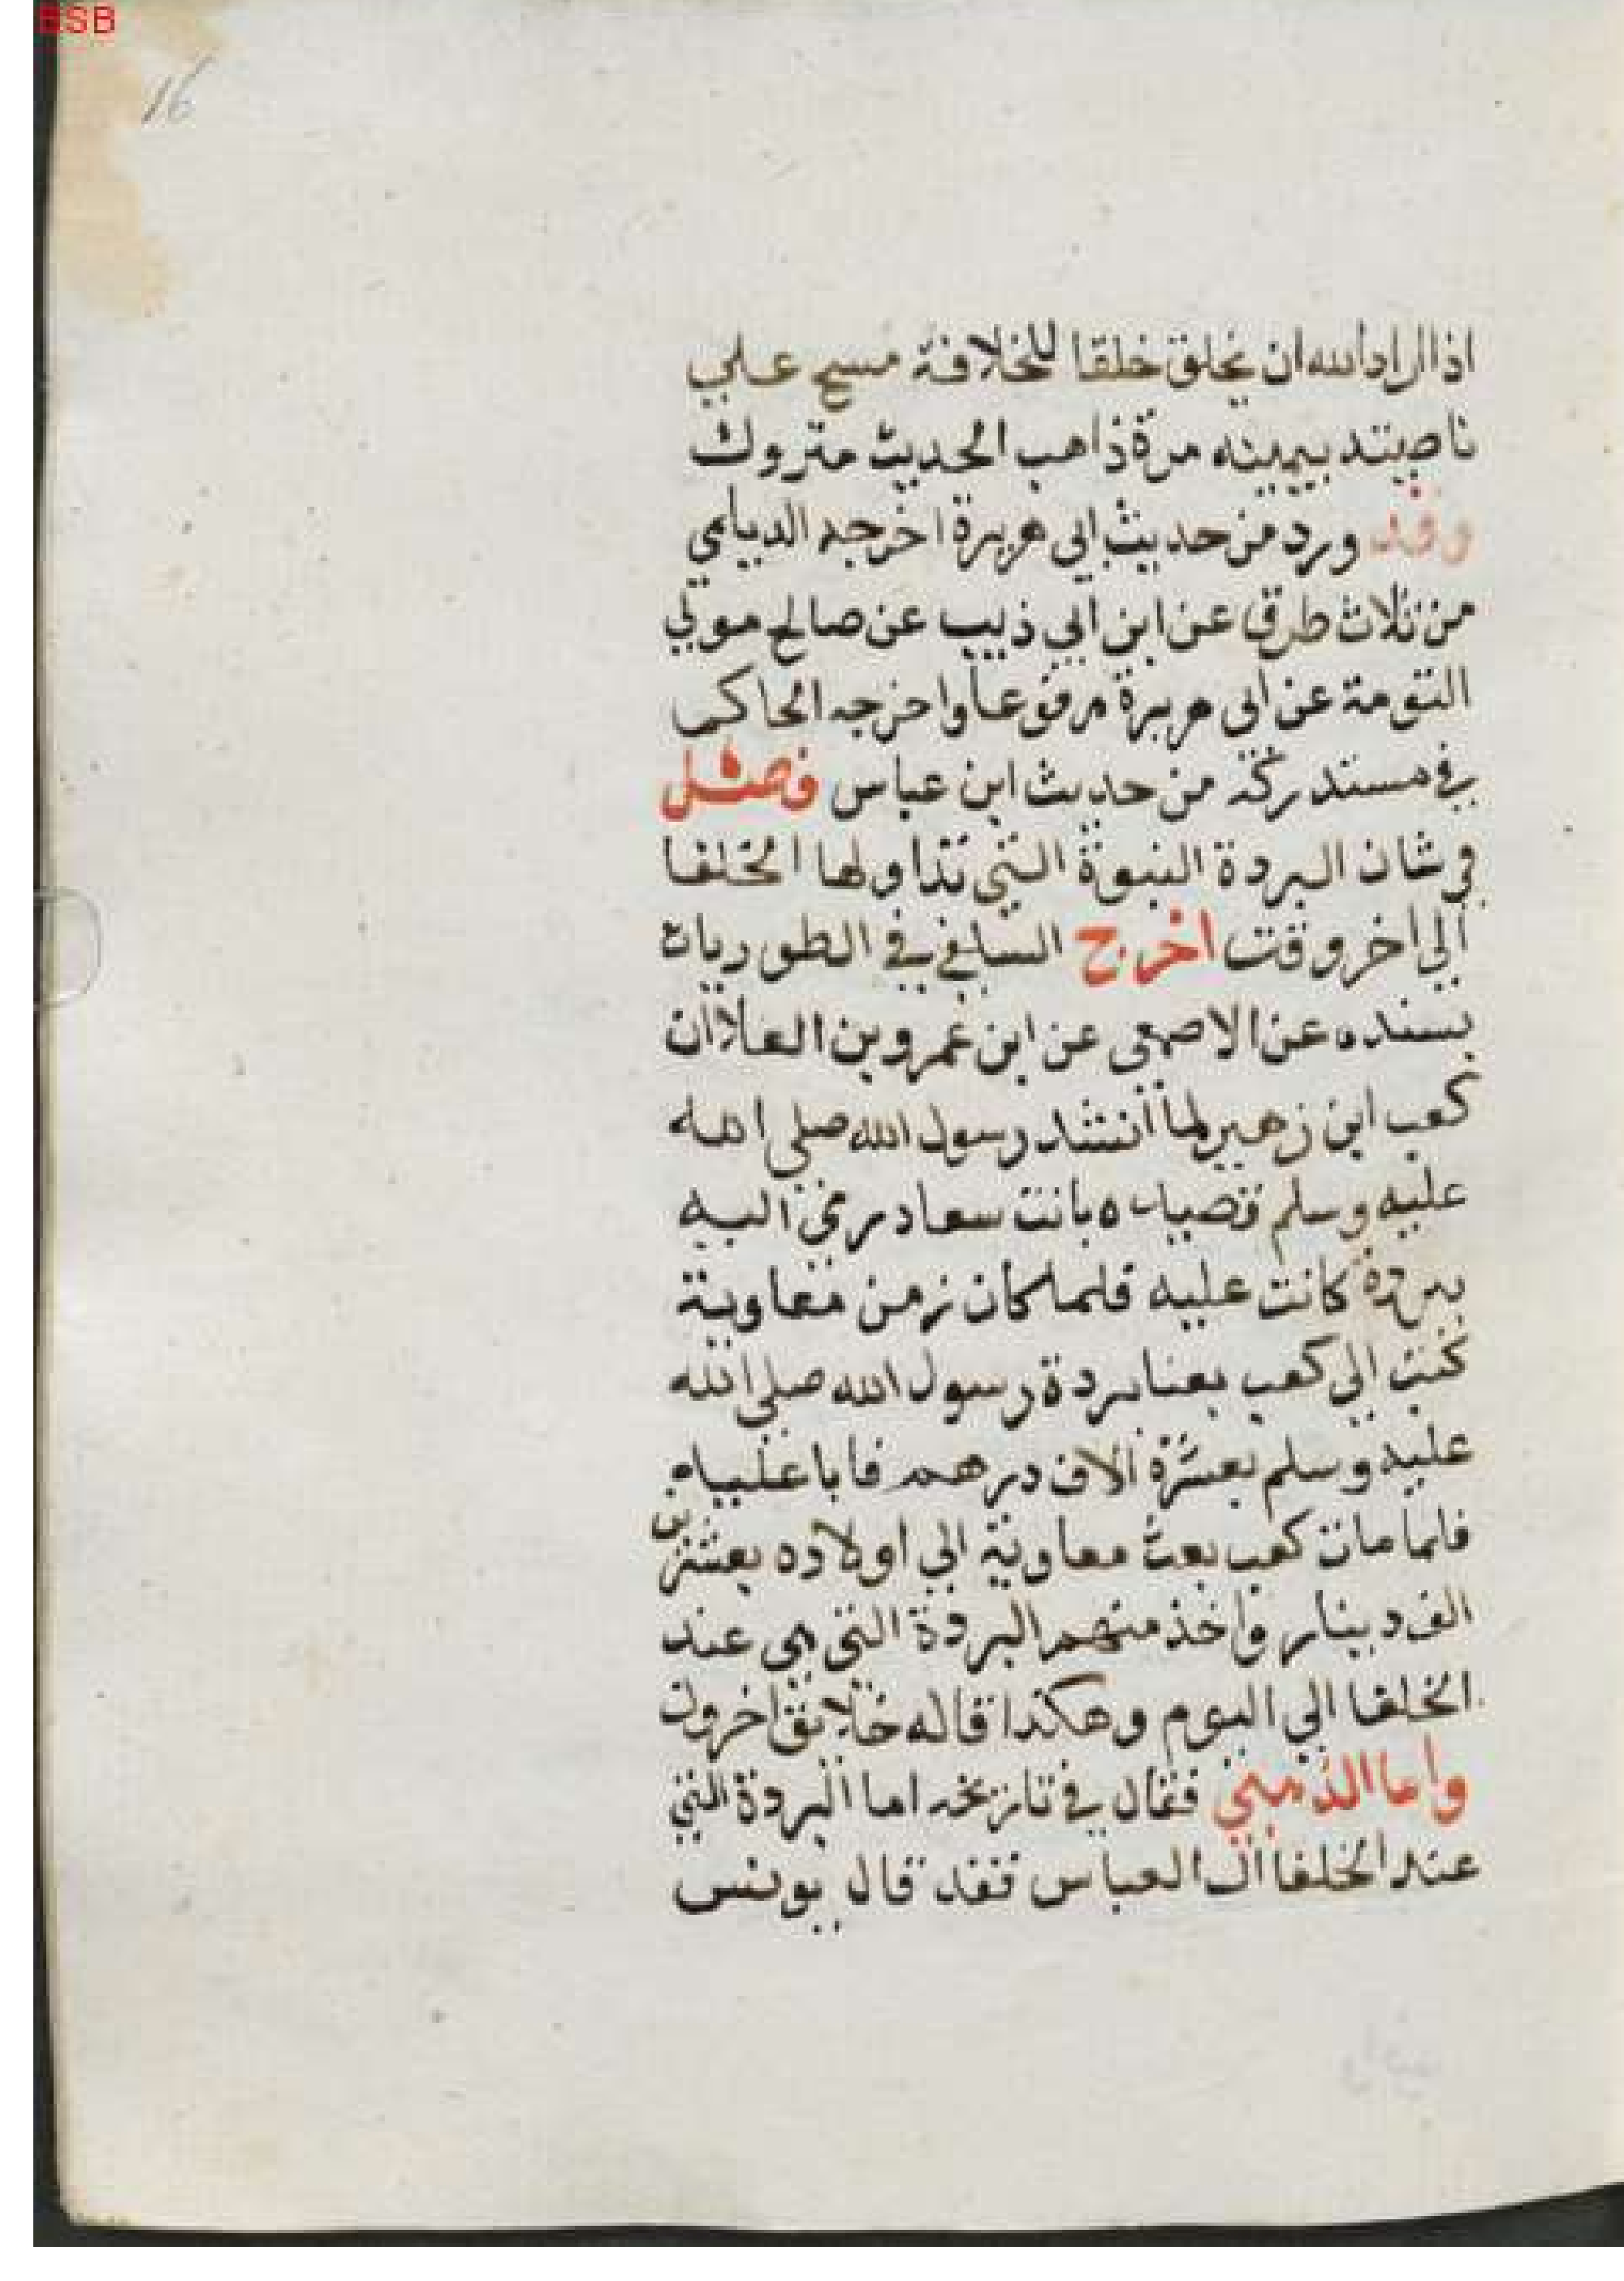 BSB
16
اذا اراد الله ان يخلق خلقا للخلافة مسح علي
ناصيته بيمينه مرة ذاهب الحديث متروك
وقد ورد من حديث ابي هريرة اخرجه الديلمي
من ثلاث طرق عن ابن ابي ذيب عن صالح مولي
التومة عن ابي هريرة مرفوعا واخرجه الحاكم
في مستدركه من حديث ابن عباس فصل
في شان البردة النبوة التي تداولها الخلفا
الي اخر وقت اخرج السلفي في الطوريات
بسنده عن الاصمعي عن ابن عمرو بن العلا ان
كعب ابن زهير لما انشد رسول الله صلي الله
عليه وسلم قصيده بانت سعاد رمى اليه
ببردة كانت عليه فلما كان زمن معاوية
كتب الي كعب بعنا بردة رسول الله صلي الله
عليه وسلم بعشرة الاف درهم فابا عليه
فلما مات كعب بعث معاوية الي اولاده بعشرين
الف دينار واخذ منهم البردة التي هي عند
الخلفا الي اليوم وهكذا قاله خلائق اخرون
واما الذهبي فقال في تاريخه اما البردة التي
عند الخلفا ال العباس فقد قال يونس